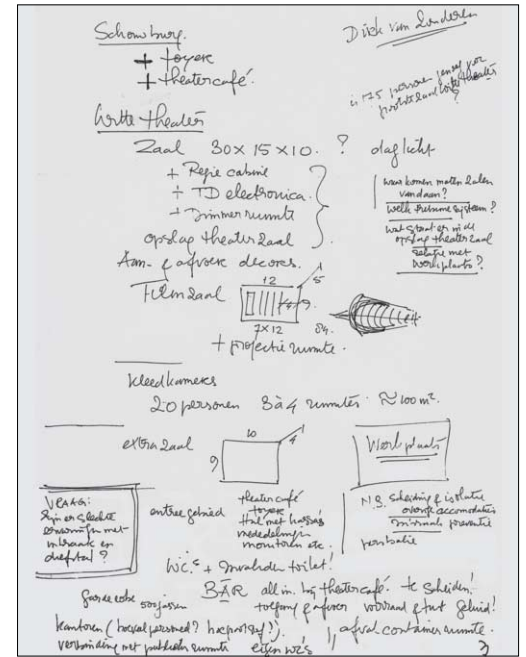 Schouwburg.
+ foyer
+ theatercafé.
Dick van Sonderen
is 175 personen genoeg voor
grote zaal Witte theater
?
Witte theater
Zaal 30 x 15 x 10. ? daglicht
+ Regie cabine
+ TD electronica.
+ Dimmer ruimte
opslag theaterzaal
Aan- & afvoer decors.
waar komen maten zalen
vandaan?
welk tribune systeem?
wat staat er in de
opslag theaterzaal
relatie met
werkplaats?
Filmzaal
12
5
9
7x12
84.
+ projectie ruimte.
kleedkamers
20 personen 3 à 4 ruimtes ≈ 100 m².
extra zaal
10
4
9
Werkplaats
VRAAG:
zijn er slechte
ervaringen met
inbraak en
diefstal?
entree gebied
theatercafé
foyer
Hal met kassa's
mededelingen
monitoren etc
N.B. scheiding & isolatie
overige accomodaties
preventie
W.C.s + Invaliden toilet!
BAR all in. bij theatercafé. te scheiden!
garderobe
toegang & afvoer voorraad & fust geluid!
kantoren (hoeveel personeel? hoe groot?).
afval container ruimte.
verbinding met publieks ruimte eigen wc's